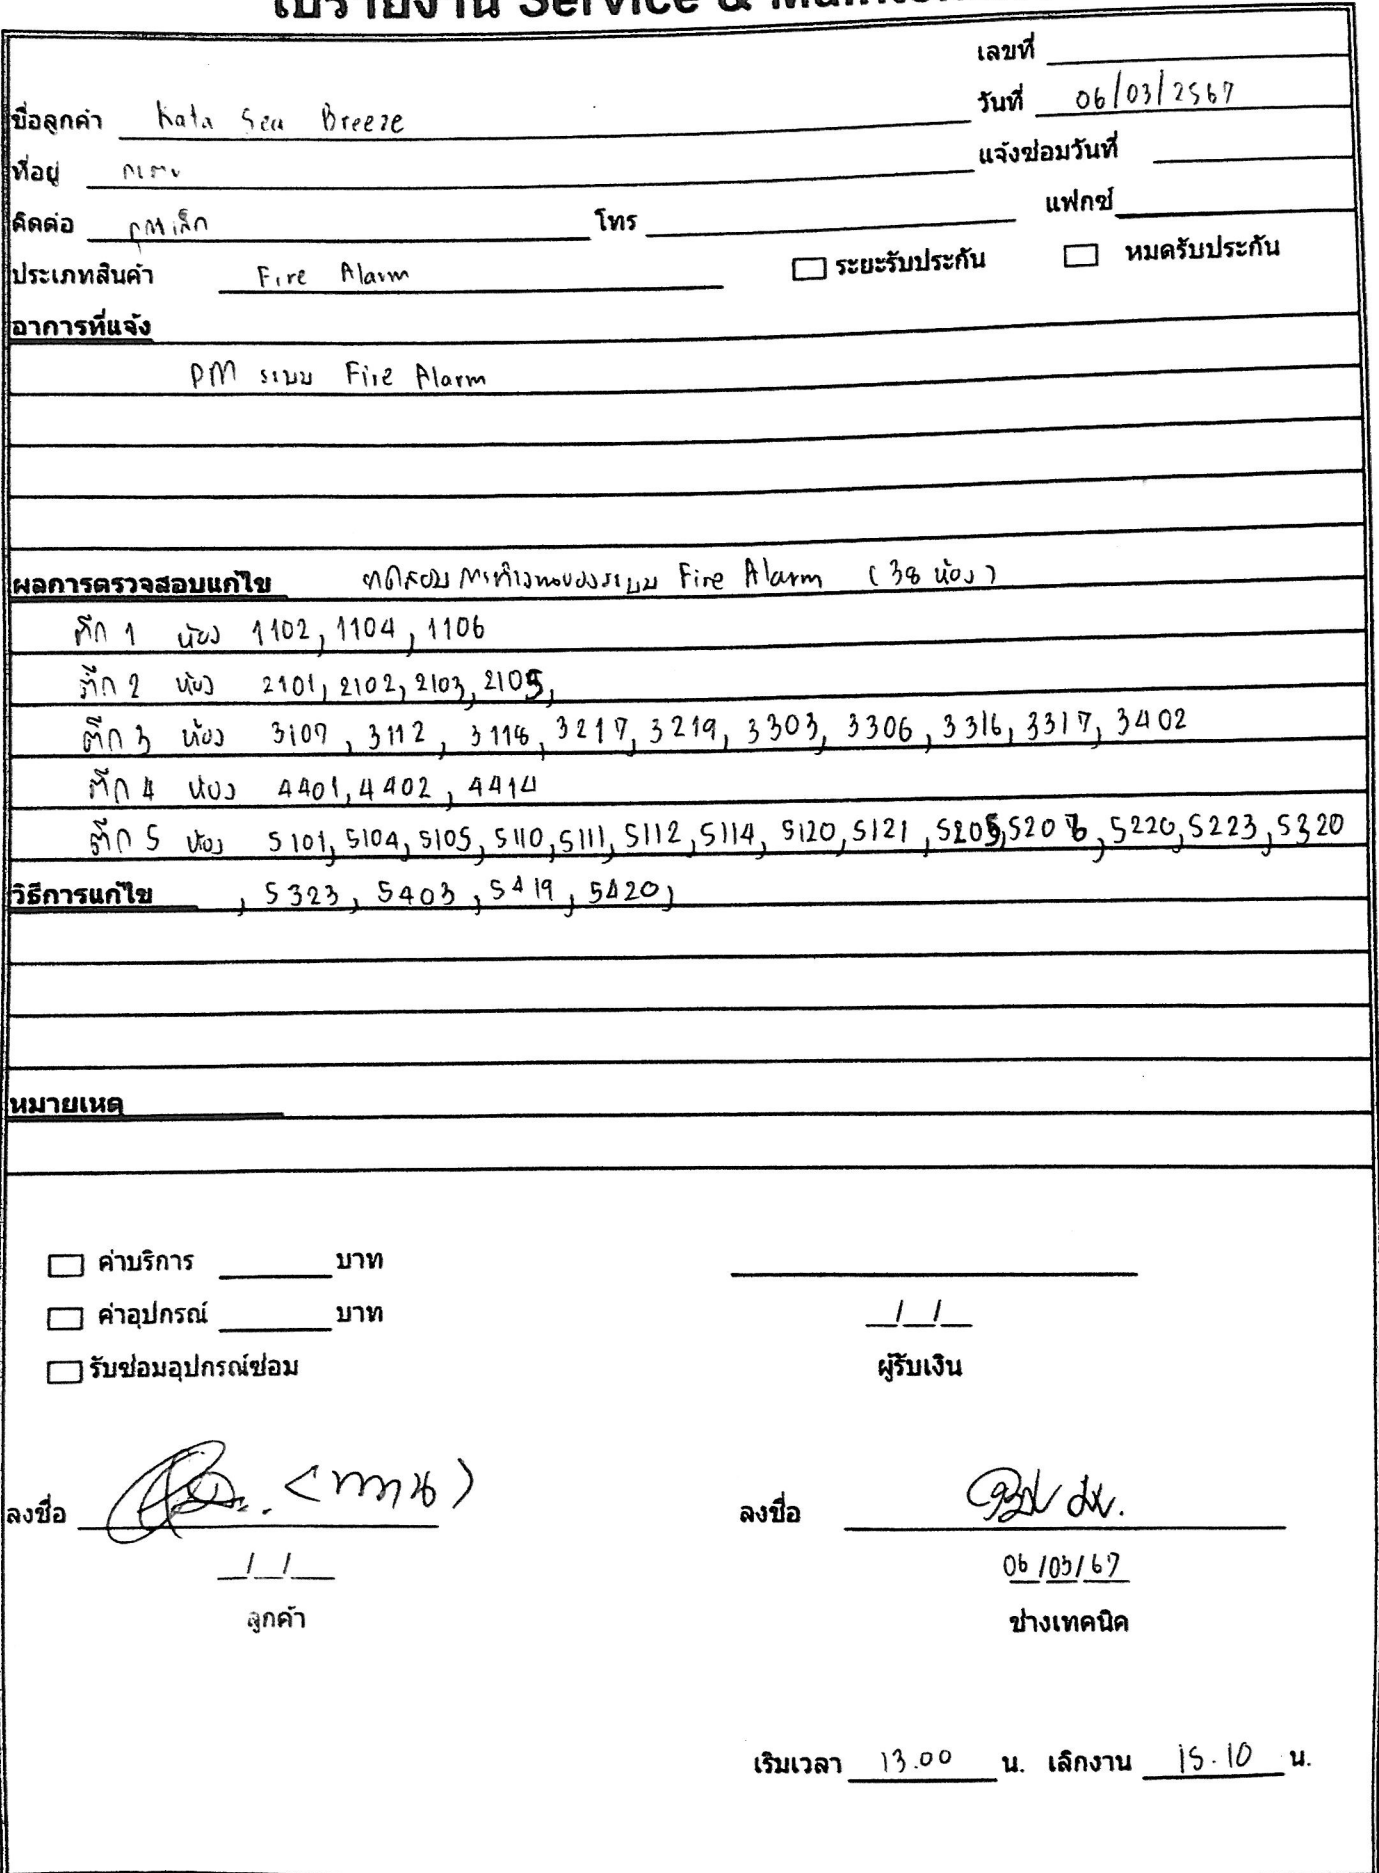 ใบรายงาน Service &
เลขที่
วันที่ 06/03/2567
ชื่อลูกค้า Kata Sea Breeze
แจ้งซ่อมวันที่
ที่อยู่ กะตะ
ติดต่อ คุณเล็ก โทร แฟกซ์
ประเภทสินค้า Fire Alarm ระยะรับประกัน หมดรับประกัน
อาการที่แจ้ง
PM ระบบ Fire Alarm
ผลการตรวจสอบแก้ไข ทดสอบการทำงานของระบบ Fire Alarm (38 ห้อง)
ตึก 1 ห้อง 1102, 1104, 1106
ตึก 2 ห้อง 2101, 2102, 2103, 2105,
ตึก 3 ห้อง 3107, 3112, 3118, 3217, 3219, 3303, 3306, 3316, 3317, 3402
ตึก 4 ห้อง 4401, 4402, 4414
ตึก 5 ห้อง 5101, 5104, 5105, 5110, 5111, 5112, 5114, 5120, 5121, 5205, 5208, 5220, 5223, 5320
วิธีการแก้ไข , 5323, 5403, 5419, 5420,
หมายเหตุ
ค่าบริการ บาท
ค่าอุปกรณ์ บาท
/ /
รับซ่อมอุปกรณ์ซ่อม ผู้รับเงิน
ลงชื่อ ลงชื่อ
/ / 06/03/67
ลูกค้า ช่างเทคนิค
เริ่มเวลา 13.00 น. เลิกงาน 15.10 น.